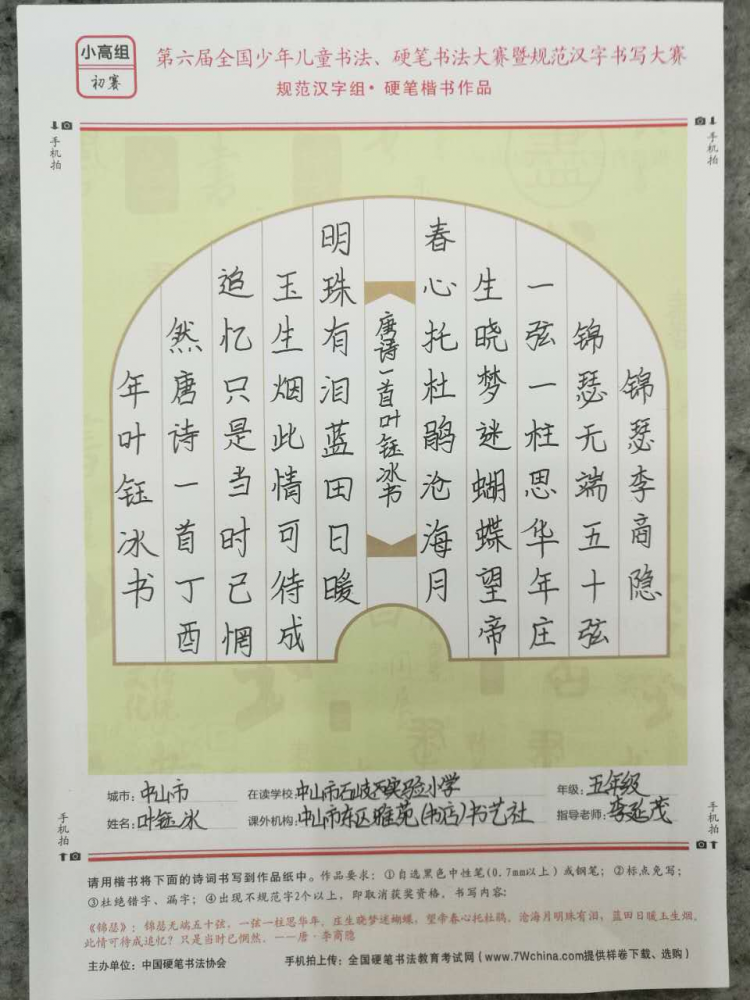 小高组
初赛
第六届全国少年儿童书法、硬笔书法大赛暨规范汉字书写大赛
规范汉字组·硬笔楷书作品
手机拍
手机拍
锦瑟李商隐
锦瑟无端五十弦
一弦一柱思华年庄
生晓梦迷蝴蝶望帝
春心托杜鹃沧海月
唐诗一首叶钰冰书
明珠有泪蓝田日暖
玉生烟此情可待成
追忆只是当时已惘
然唐诗一首丁酉
年叶钰冰书
城市：中山市 在读学校：中山市石岐西实验小学 年级：五年级
姓名：叶钰冰 课外机构：中山市东区雅苑(书店)书艺社 指导老师：李延茂
手机拍
手机拍
请用楷书将下面的诗词书写到作品纸中。作品要求：①自选黑色中性笔(0.7mm以上)或钢笔；②标点免写；
③杜绝错字、漏字；④出现不规范字2个以上，即取消获奖资格。书写内容：
《锦瑟》：锦瑟无端五十弦，一弦一柱思华年。庄生晓梦迷蝴蝶，望帝春心托杜鹃。沧海月明珠有泪，蓝田日暖玉生烟。
此情可待成追忆？只是当时已惘然。——唐·李商隐
主办单位：中国硬笔书法协会 手机拍上传：全国硬笔书法教育考试网（www.7Wchina.com提供样卷下载、选购）